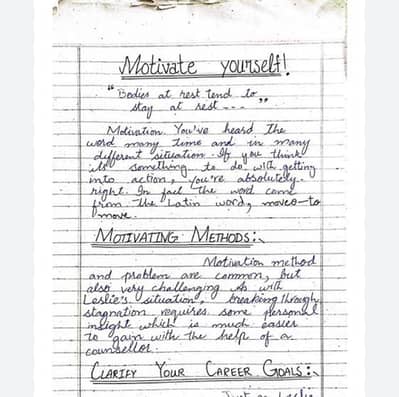 Motivate yourself!
"Bodies at rest tend to
stay at rest---"
Motivation. You've heard the
word many time and in many
different situation. If you think
its something to do with getting
into action, You're absolutely.
right. In fact the word come
from the Latin word, moves-to
move.
MOTIVATING METHODS:
Motivation method
and problem are common, but
also very challenging As with
Leslie's situation, breaking through
stagnation requires some personal
insight which is much easier
to gain with the help of a
counsellor.
CLARIFY YOUR CAREER GOALS:
Just as Leslie